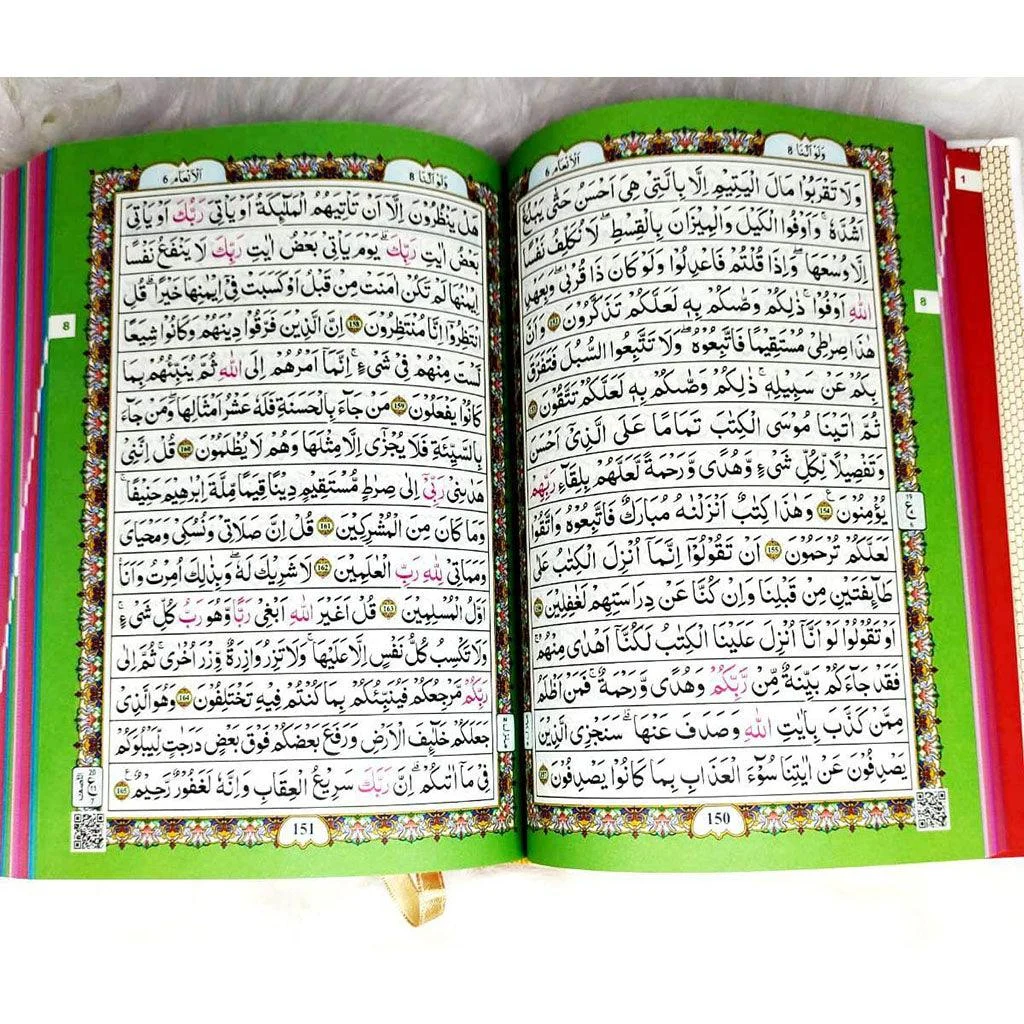 وَلَوْ اَنَّنَا 8
اَلْاَنْعَام 6
وَلَا تَقْرَبُوْا مَالَ الْيَتِيْمِ اِلَّا بِالَّتِيْ هِيَ اَحْسَنُ حَتّٰى يَبْلُغَ
اَشُدَّهٗ ۚ وَاَوْفُوا الْكَيْلَ وَالْمِيْزَانَ بِالْقِسْطِ ۚ لَا نُكَلِّفُ نَفْسًا
اِلَّا وُسْعَهَا ۚ وَاِذَا قُلْتُمْ فَاعْدِلُوْا وَلَوْ كَانَ ذَا قُرْبٰى ۚ وَبِعَهْدِ
اللّٰهِ اَوْفُوْا ؕ ذٰلِكُمْ وَصّٰىكُمْ بِهٖ لَعَلَّكُمْ تَذَكَّرُوْنَ ۙ وَاَنَّ
هٰذَا صِرَاطِيْ مُسْتَقِيْمًا فَاتَّبِعُوْهُ ۚ وَلَا تَتَّبِعُوا السُّبُلَ فَتَفَرَّقَ
بِكُمْ عَنْ سَبِيْلِهٖ ؕ ذٰلِكُمْ وَصّٰىكُمْ بِهٖ لَعَلَّكُمْ تَتَّقُوْنَ
ثُمَّ اٰتَيْنَا مُوْسَى الْكِتٰبَ تَمَامًا عَلَى الَّذِيْٓ اَحْسَنَ
وَتَفْصِيْلًا لِّكُلِّ شَيْءٍ وَّهُدًى وَّرَحْمَةً لَّعَلَّهُمْ بِلِقَآءِ رَبِّهِمْ
يُؤْمِنُوْنَ 154 وَهٰذَا كِتٰبٌ اَنْزَلْنٰهُ مُبَارَكٌ فَاتَّبِعُوْهُ وَاتَّقُوْا
لَعَلَّكُمْ تُرْحَمُوْنَ 155 اَنْ تَقُوْلُوْٓا اِنَّمَآ اُنْزِلَ الْكِتٰبُ عَلٰى
طَآئِفَتَيْنِ مِنْ قَبْلِنَا وَاِنْ كُنَّا عَنْ دِرَاسَتِهِمْ لَغٰفِلِيْنَ 156
اَوْ تَقُوْلُوْا لَوْ اَنَّآ اُنْزِلَ عَلَيْنَا الْكِتٰبُ لَكُنَّآ اَهْدٰى مِنْهُمْ ۚ
فَقَدْ جَآءَكُمْ بَيِّنَةٌ مِّنْ رَّبِّكُمْ وَهُدًى وَّرَحْمَةٌ ۚ فَمَنْ اَظْلَمُ
مِمَّنْ كَذَّبَ بِاٰيٰتِ اللّٰهِ وَصَدَفَ عَنْهَا ؕ سَنَجْزِي الَّذِيْنَ
يَصْدِفُوْنَ عَنْ اٰيٰتِنَا سُوْٓءَ الْعَذَابِ بِمَا كَانُوْا يَصْدِفُوْنَ 157
150
1
8
وَلَوْ اَنَّنَا 8
اَلْاَنْعَام 6
هَلْ يَنْظُرُوْنَ اِلَّآ اَنْ تَأْتِيَهُمُ الْمَلٰٓئِكَةُ اَوْ يَأْتِيَ رَبُّكَ اَوْ يَأْتِيَ
بَعْضُ اٰيٰتِ رَبِّكَ ؕ يَوْمَ يَأْتِيْ بَعْضُ اٰيٰتِ رَبِّكَ لَا يَنْفَعُ نَفْسًا
اِيْمٰنُهَا لَمْ تَكُنْ اٰمَنَتْ مِنْ قَبْلُ اَوْ كَسَبَتْ فِيْٓ اِيْمٰنِهَا خَيْرًا ؕ قُلِ
انْتَظِرُوْٓا اِنَّا مُنْتَظِرُوْنَ 158 اِنَّ الَّذِيْنَ فَرَّقُوْا دِيْنَهُمْ وَكَانُوْا شِيَعًا
لَّسْتَ مِنْهُمْ فِيْ شَيْءٍ ؕ اِنَّمَآ اَمْرُهُمْ اِلَى اللّٰهِ ثُمَّ يُنَبِّئُهُمْ بِمَا
كَانُوْا يَفْعَلُوْنَ 159 مَنْ جَآءَ بِالْحَسَنَةِ فَلَهٗ عَشْرُ اَمْثَالِهَا ۚ وَمَنْ جَآءَ
بِالسَّيِّئَةِ فَلَا يُجْزٰٓى اِلَّا مِثْلَهَا وَهُمْ لَا يُظْلَمُوْنَ 160 قُلْ اِنَّنِيْ
هَدٰىنِيْ رَبِّيْٓ اِلٰى صِرٰطٍ مُّسْتَقِيْمٍ ۚ دِيْنًا قِيَمًا مِّلَّةَ اِبْرٰهِيْمَ حَنِيْفًا ۚ
وَمَا كَانَ مِنَ الْمُشْرِكِيْنَ 161 قُلْ اِنَّ صَلَاتِيْ وَنُسُكِيْ وَمَحْيَايَ
وَمَمَاتِيْ لِلّٰهِ رَبِّ الْعٰلَمِيْنَ 162 لَا شَرِيْكَ لَهٗ ۚ وَبِذٰلِكَ اُمِرْتُ وَاَنَا
اَوَّلُ الْمُسْلِمِيْنَ 163 قُلْ اَغَيْرَ اللّٰهِ اَبْغِيْ رَبًّا وَّهُوَ رَبُّ كُلِّ شَيْءٍ ؕ
وَلَا تَكْسِبُ كُلُّ نَفْسٍ اِلَّا عَلَيْهَا ۚ وَلَا تَزِرُ وَازِرَةٌ وِّزْرَ اُخْرٰى ۚ ثُمَّ اِلٰى
رَبِّكُمْ مَّرْجِعُكُمْ فَيُنَبِّئُكُمْ بِمَا كُنْتُمْ فِيْهِ تَخْتَلِفُوْنَ 164 وَهُوَ الَّذِيْ
جَعَلَكُمْ خَلٰٓئِفَ الْاَرْضِ وَرَفَعَ بَعْضَكُمْ فَوْقَ بَعْضٍ دَرَجٰتٍ لِّيَبْلُوَكُمْ
فِيْ مَآ اٰتٰىكُمْ ؕ اِنَّ رَبَّكَ سَرِيْعُ الْعِقَابِ وَاِنَّهٗ لَغَفُوْرٌ رَّحِيْمٌ 165
151
8